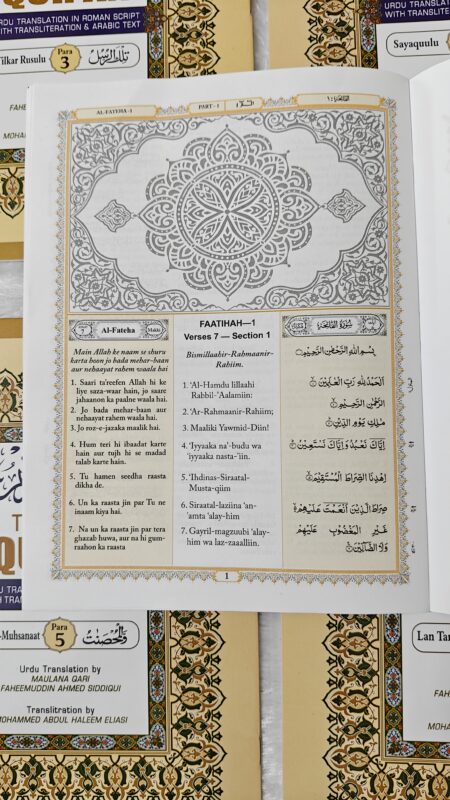 URDU TRANSLATION IN ROMAN SCRIPT
WITH TRANSLITERATION & ARABIC TEXT
Tilkar Rusulu
Para
3
تلك الرسل
URDU TRANSLATION
WITH TRANSLITER
Sayaquulu
AL-FATEHA-1
PART - 1
الفاتحة ١
7
Al-Fateha
Makki
Main Allah ke naam se shuru
karta hoon jo bada mehar-baan
aur nehaayat rahem waala hai
1. Saari ta'reefen Allah hi ke
liye saza-waar hain, jo saare
jahaanon ka paalne waala hai.
2. Jo bada mehar-baan aur
nehaayat rahem waala hai.
3. Jo roz-e-jazaka maalik hai.
4. Hum teri hi ibaadat karte
hain aur tujh hi se madad
talab karte hain.
5. Tu hamen seedha raasta
dikha de.
6. Un ka raasta jin par Tu ne
inaam kiya hai.
7. Na un ka raasta jin par tera
ghazab huwa, aur na hi gum-
raahon ka raasta
FAATIHAH—1
Verses 7 — Section 1
Bismillaahir-Rahmaanir-
Rahiim.
1. 'Al-Hamdu lillaahi
Rabbil-'Aalamiin:
2. 'Ar-Rahmaanir-Rahiim;
3. Maaliki Yawmid-Diin!
4. 'Iyyaaka na'-budu wa
'iyyaaka nasta-'iin.
5. 'Ihdinas-Siraatal-
Musta-qiim
6. Siraatal-laziina 'an-
'amta 'alay-him
7. Gayril-magzuubi 'alay-
him wa laz-zaaalliin.
سُوْرَةُ الْفَاتِحَةِ
بِسْمِ اللّٰهِ الرَّحْمٰنِ الرَّحِيْمِ
اَلْحَمْدُ لِلّٰهِ رَبِّ الْعٰلَمِيْنَ ۝١
الرَّحْمٰنِ الرَّحِيْمِ ۝٢
مٰلِكِ يَوْمِ الدِّيْنِ ۝٣
اِيَّاكَ نَعْبُدُ وَاِيَّاكَ نَسْتَعِيْنُ ۝٤
اِهْدِنَا الصِّرَاطَ الْمُسْتَقِيْمَ ۝٥
صِرَاطَ الَّذِيْنَ اَنْعَمْتَ عَلَيْهِمْ ۝٦
غَيْرِ الْمَغْضُوْبِ عَلَيْهِمْ
وَلَا الضَّآلِّيْنَ ۝٧
1
-Muhsanaat
Para
5
والمحصنت
Urdu Translation by
MAULANA QARI
FAHEEMUDDIN AHMED SIDDIQUI
Translitration by
MOHAMMED ABDUL HALEEM ELIASI
Lan Tan